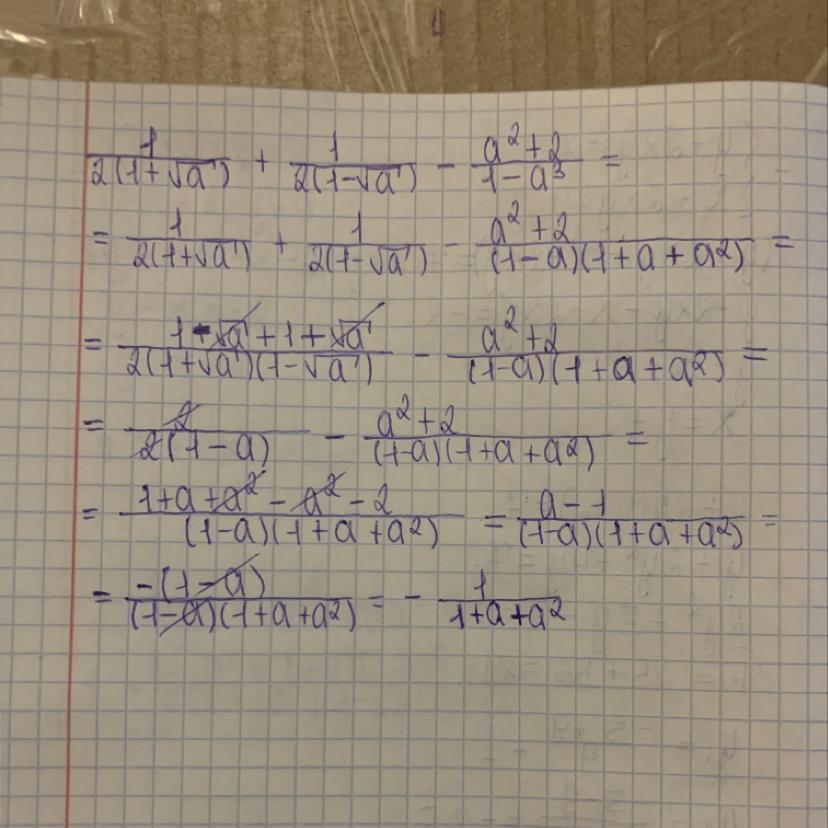 1/(2(1+√a)) + 1/(2(1-√a)) - (a²+2)/(1-a³) =
= 1/(2(1+√a)) + 1/(2(1-√a)) - (a²+2)/((1-a)(1+a+a²)) =
= (1-√a+1+√a)/(2(1+√a)(1-√a)) - (a²+2)/((1-a)(1+a+a²)) =
= 2/(2(1-a)) - (a²+2)/((1-a)(1+a+a²)) =
= (1+a+a²-a²-2)/((1-a)(1+a+a²)) = (a-1)/((1-a)(1+a+a²)) =
= (-(1-a))/((1-a)(1+a+a²)) = - 1/(1+a+a²)